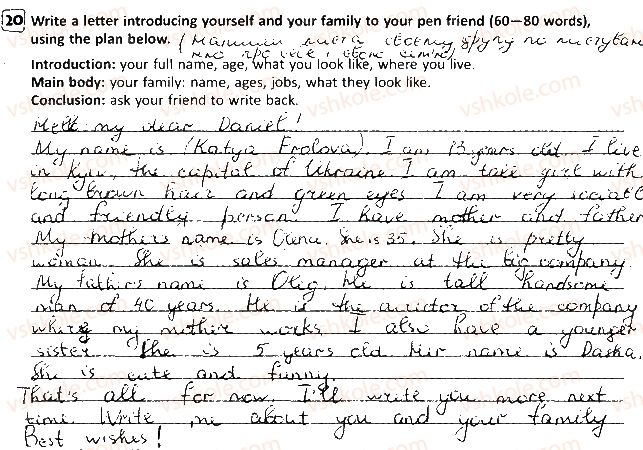 20 Write a letter introducing yourself and your family to your pen friend (60—80 words),
using the plan below. (Напиши листа своєму другу по листуванню
про себе і свою сім'ю)
Introduction: your full name, age, what you look like, where you live.
Main body: your family: name, ages, jobs, what they look like.
Conclusion: ask your friend to write back.
my dear Daniel!
My name is (Katya Frolova). I am 13 years old. I live
in Kyiv, the capital of Ukraine. I am tall girl with
long brown hair and green eyes. I am very sociabl
and friendly person. I have mother and father
My mothers name is Olena. She is 35. She is pretty
woman. She is sales manager at the big company
My fathers name is Oleg. He is tall handsome
man of 40 years. He is the director of the company
where my mother works. I also have a younger
sister She is 5 years old. Her name is Dasha.
She is cute and funny.
That's all for now. I'll write you more next
time. Write me about you and your family
Best wishes!
vshkole.com